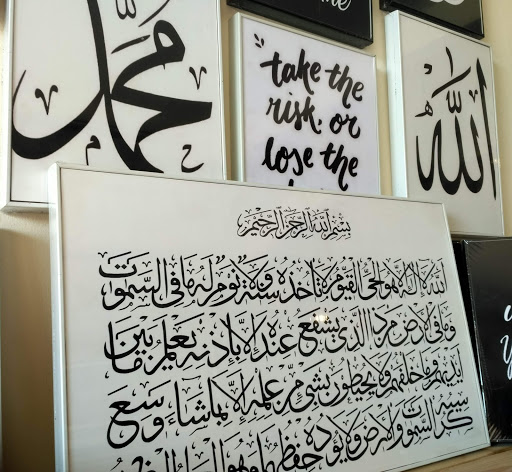 محمد
take the
risk. or
lose the
الله
بسم الله الرحمن الرحيم
الله لا اله الا هو الحي القيوم لا تاخذه سنة ولا نوم له ما في السموت
وما في الارض من ذا الذي يشفع عنده الا باذنه يعلم ما بين
ايديهم وما خلفهم ولا يحيطون بشيء من علمه الا بما شاء وسع
كرسيه السموت والارض ولا يوده حفظهما وهو